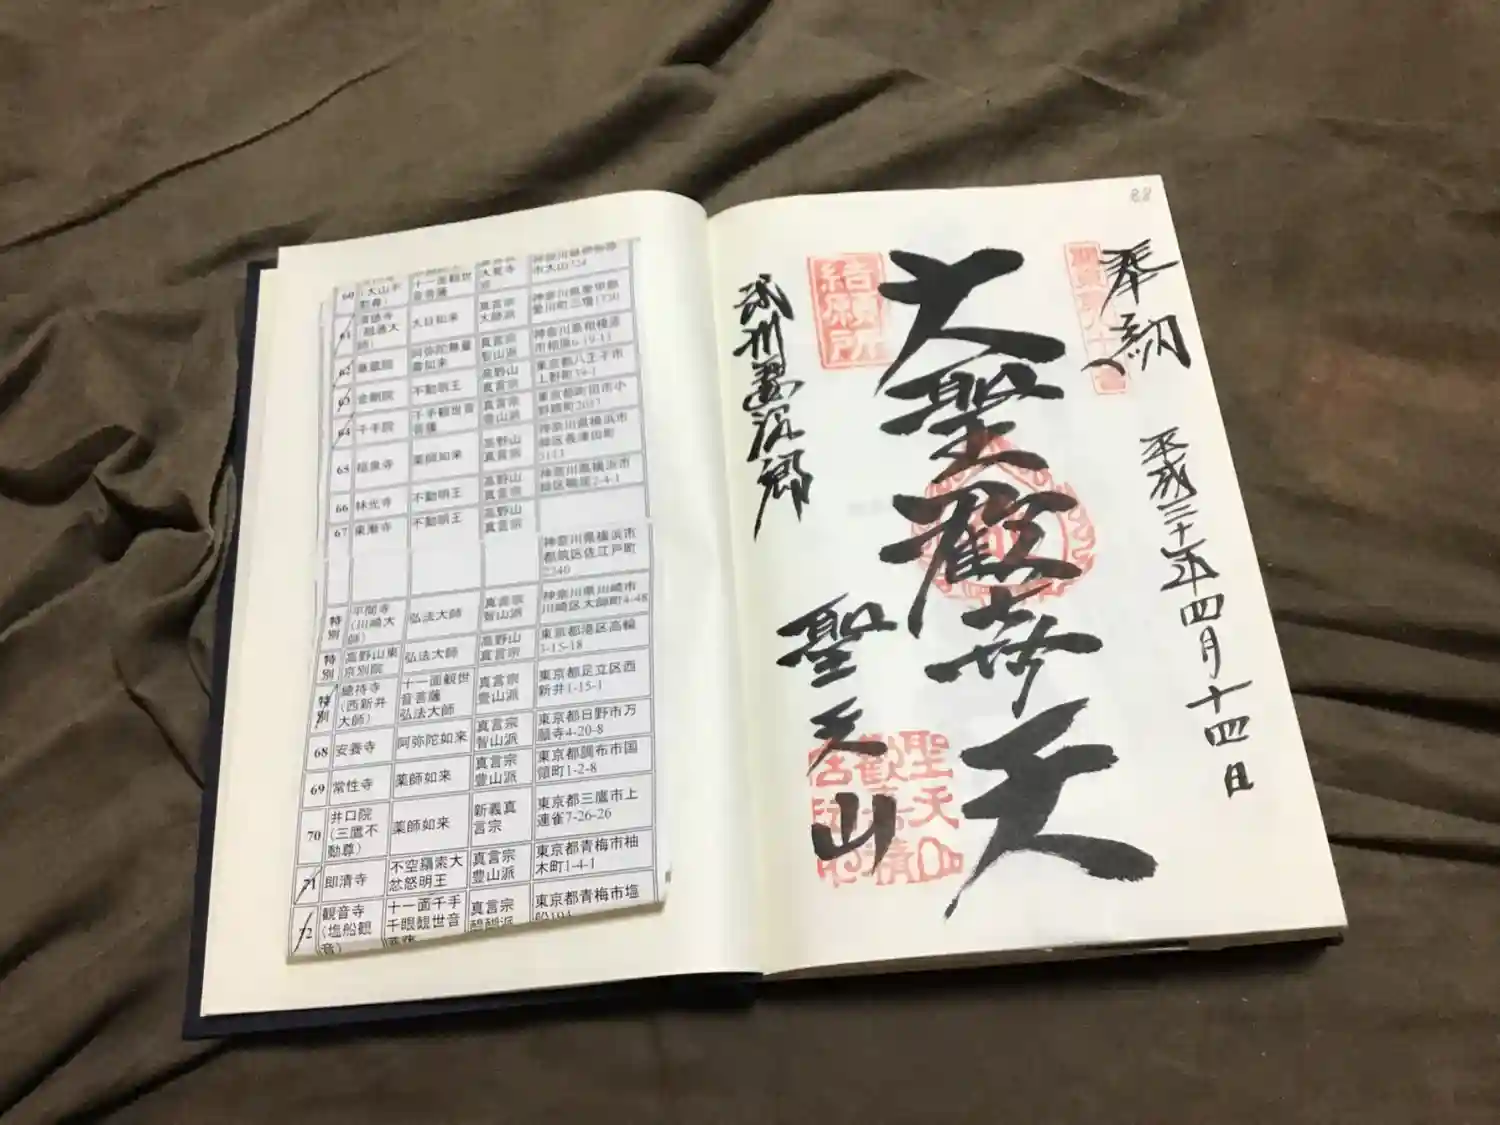 60 (大山不動尊) 十一面観世音菩薩 大覚寺
61 大日如来 真言宗大師派
62 華蔵院 阿弥陀無量寿如来 真言宗智山派
63 金剛院 不動明王 高野山真言宗 東京都八王子市上野町39-1
64 千手院 千手観世音菩薩 真言宗豊山派 東京都町田市小野路町2057
65 福泉寺 薬師如来 高野山真言宗 神奈川県横浜市緑区長津田町3113
66 林光寺 不動明王 高野山真言宗 神奈川県横浜市緑区鴨居2-4-1
67 東漸寺 不動明王 高野山真言宗
神奈川県横浜市都筑区佐江戸町2240
特別 平間寺(川崎大師) 弘法大師 真言宗智山派 神奈川県川崎市川崎区大師町4-48
特別 高野山東京別院 弘法大師 高野山真言宗 東京都港区高輪3-15-18
特別 總持寺(西新井大師) 十一面観世音菩薩 弘法大師 真言宗豊山派 東京都足立区西新井1-15-1
68 安養寺 阿弥陀如来 真言宗智山派 東京都日野市万願寺4-20-8
69 常性寺 薬師如来 真言宗豊山派 東京都調布市国領町1-2-8
70 井口院(三鷹不動尊) 薬師如来 新義真言宗 東京都三鷹市上連雀7-26-26
71 即清寺 不空羂索大忿怒明王 真言宗豊山派 東京都青梅市柚木町1-4-1
72 観音寺(塩船観音) 十一面千手千眼観世音菩薩 真言宗醍醐派 東京都青梅市塩船194
88
奉納
平成二十年四月十四日
大聖歓喜天
結願所
武州妻沼郷
聖天山
聖天山
歓喜